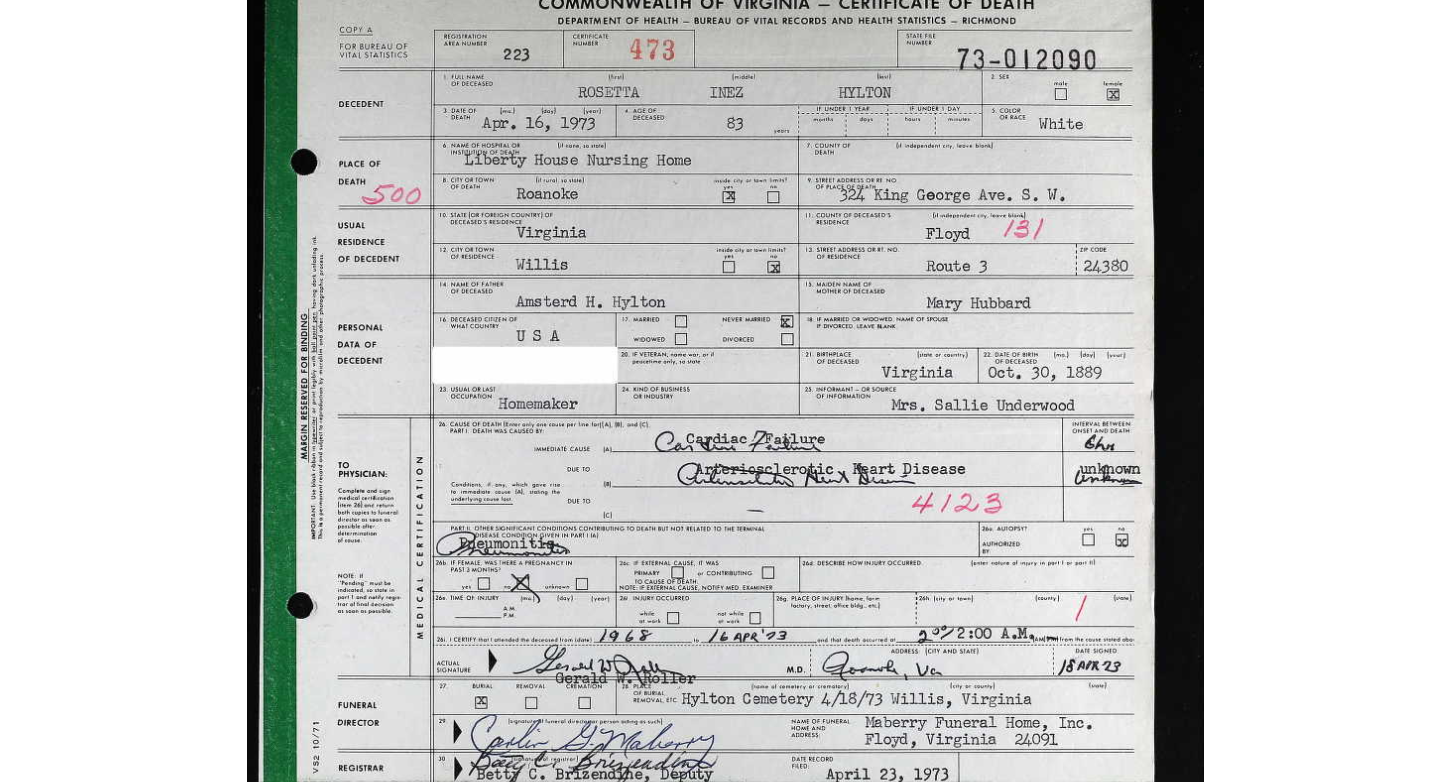 COMMONWEALTH OF VIRGINIA — CERTIFICATE OF DEATH
DEPARTMENT OF HEALTH — BUREAU OF VITAL RECORDS AND HEALTH STATISTICS — RICHMOND
COPY A
FOR BUREAU OF VITAL STATISTICS
REGISTRATION AREA NUMBER 223
CERTIFICATE NUMBER 473
STATE FILE NUMBER 73-012090
DECEDENT
1. FULL NAME OF DECEASED (first) (middle) (last)
ROSETTA INEZ HYLTON
2. SEX male female X
3. DATE OF DEATH (mo.) (day) (year)
Apr. 16, 1973
4. AGE OF DECEASED 83 years
IF UNDER 1 YEAR months days
IF UNDER 1 DAY hours minutes
5. COLOR OR RACE White
PLACE OF DEATH
500
6. NAME OF HOSPITAL OR INSTITUTION OF DEATH (if none, so state)
Liberty House Nursing Home
7. COUNTY OF DEATH (if independent city, leave blank)
8. CITY OR TOWN OF DEATH (if rural, so state)
Roanoke
inside city or town limits? yes X no
9. STREET ADDRESS OR RT. NO. OF PLACE OF DEATH
324 King George Ave. S. W.
USUAL RESIDENCE OF DECEDENT
10. STATE (OR FOREIGN COUNTRY) OF DECEASED'S RESIDENCE
Virginia
11. COUNTY OF DECEASED'S RESIDENCE (if independent city, leave blank)
Floyd 131
12. CITY OR TOWN OF RESIDENCE
Willis
inside city or town limits? yes no X
13. STREET ADDRESS OR RT. NO. OF RESIDENCE
Route 3
ZIP CODE 24380
PERSONAL DATA OF DECEDENT
14. NAME OF FATHER OF DECEASED
Amsterd H. Hylton
15. MAIDEN NAME OF MOTHER OF DECEASED
Mary Hubbard
16. DECEASED CITIZEN OF WHAT COUNTRY
U S A
17. MARRIED NEVER MARRIED X
WIDOWED DIVORCED
18. IF MARRIED OR WIDOWED, NAME OF SPOUSE
IF DIVORCED, LEAVE BLANK
20. IF VETERAN, name war, or if peacetime only, so state
21. BIRTHPLACE OF DECEASED (state or country)
Virginia
22. DATE OF BIRTH OF DECEASED (mo.) (day) (year)
Oct. 30, 1889
23. USUAL OR LAST OCCUPATION
Homemaker
24. KIND OF BUSINESS OR INDUSTRY
25. INFORMANT – OR SOURCE OF INFORMATION
Mrs. Sallie Underwood
MARGIN RESERVED FOR BINDING
TO PHYSICIAN:
Complete and sign medical certification (item 26) and return both copies to funeral director as soon as possible after determination of cause.
NOTE: If "Pending" must be indicated, so state in part I and notify registrar of final decision as soon as possible.
MEDICAL CERTIFICATION
26. CAUSE OF DEATH (Enter only one cause per line for (A), (B), and (C).
PART I. DEATH WAS CAUSED BY:
INTERVAL BETWEEN ONSET AND DEATH
IMMEDIATE CAUSE (A) Cardiac Failure
Cardiac Failure
DUE TO
(B) Arteriosclerotic Heart Disease
unknown
unknown
Conditions, if any, which gave rise to immediate cause (A), stating the underlying cause last.
DUE TO
(C) —
4123
PART II. OTHER SIGNIFICANT CONDITIONS CONTRIBUTING TO DEATH BUT NOT RELATED TO THE TERMINAL DISEASE CONDITION GIVEN IN PART I (A)
Pneumonitis
Pneumonitis
26a. AUTOPSY? yes no X
AUTHORIZED BY
26b. IF FEMALE, WAS THERE A PREGNANCY IN PAST 3 MONTHS?
yes no X unknown
26c. IF EXTERNAL CAUSE, IT WAS
PRIMARY or CONTRIBUTING
TO CAUSE OF DEATH.
NOTE: IF EXTERNAL CAUSE, NOTIFY MED. EXAMINER
26d. DESCRIBE HOW INJURY OCCURRED (enter nature of injury in part I or part II)
26e. TIME OF INJURY (mo.) (day) (year)
A.M.
P.M.
26f. INJURY OCCURRED
while at work not while at work
26g. PLACE OF INJURY (home, farm factory, street, office bldg., etc.)
26h. (city or town) (county) (state)
1
26i. I CERTIFY that I attended the deceased from (date) 1968 to 16 APR '73 and that death occurred at 2:00 A.M. from the cause stated
ACTUAL SIGNATURE
Gerald W. Roller
M.D.
ADDRESS: (CITY AND STATE)
Roanoke, Va
DATE SIGNED
18 APR 73
FUNERAL DIRECTOR
27. BURIAL X REMOVAL CREMATION
28. PLACE OF BURIAL, REMOVAL, ETC. (name of cemetery or crematory) (city or county) (state)
Hylton Cemetery 4/18/73 Willis, Virginia
29. (signature of funeral director or person acting as such)
Carlin G. Maberry
NAME OF FUNERAL HOME AND ADDRESS:
Maberry Funeral Home, Inc.
Floyd, Virginia 24091
REGISTRAR
30. (signature of registrar)
Betty C. Brizendine
Betty C. Brizendine, Deputy
DATE RECORD FILED:
April 23, 1973
VS2 10/71